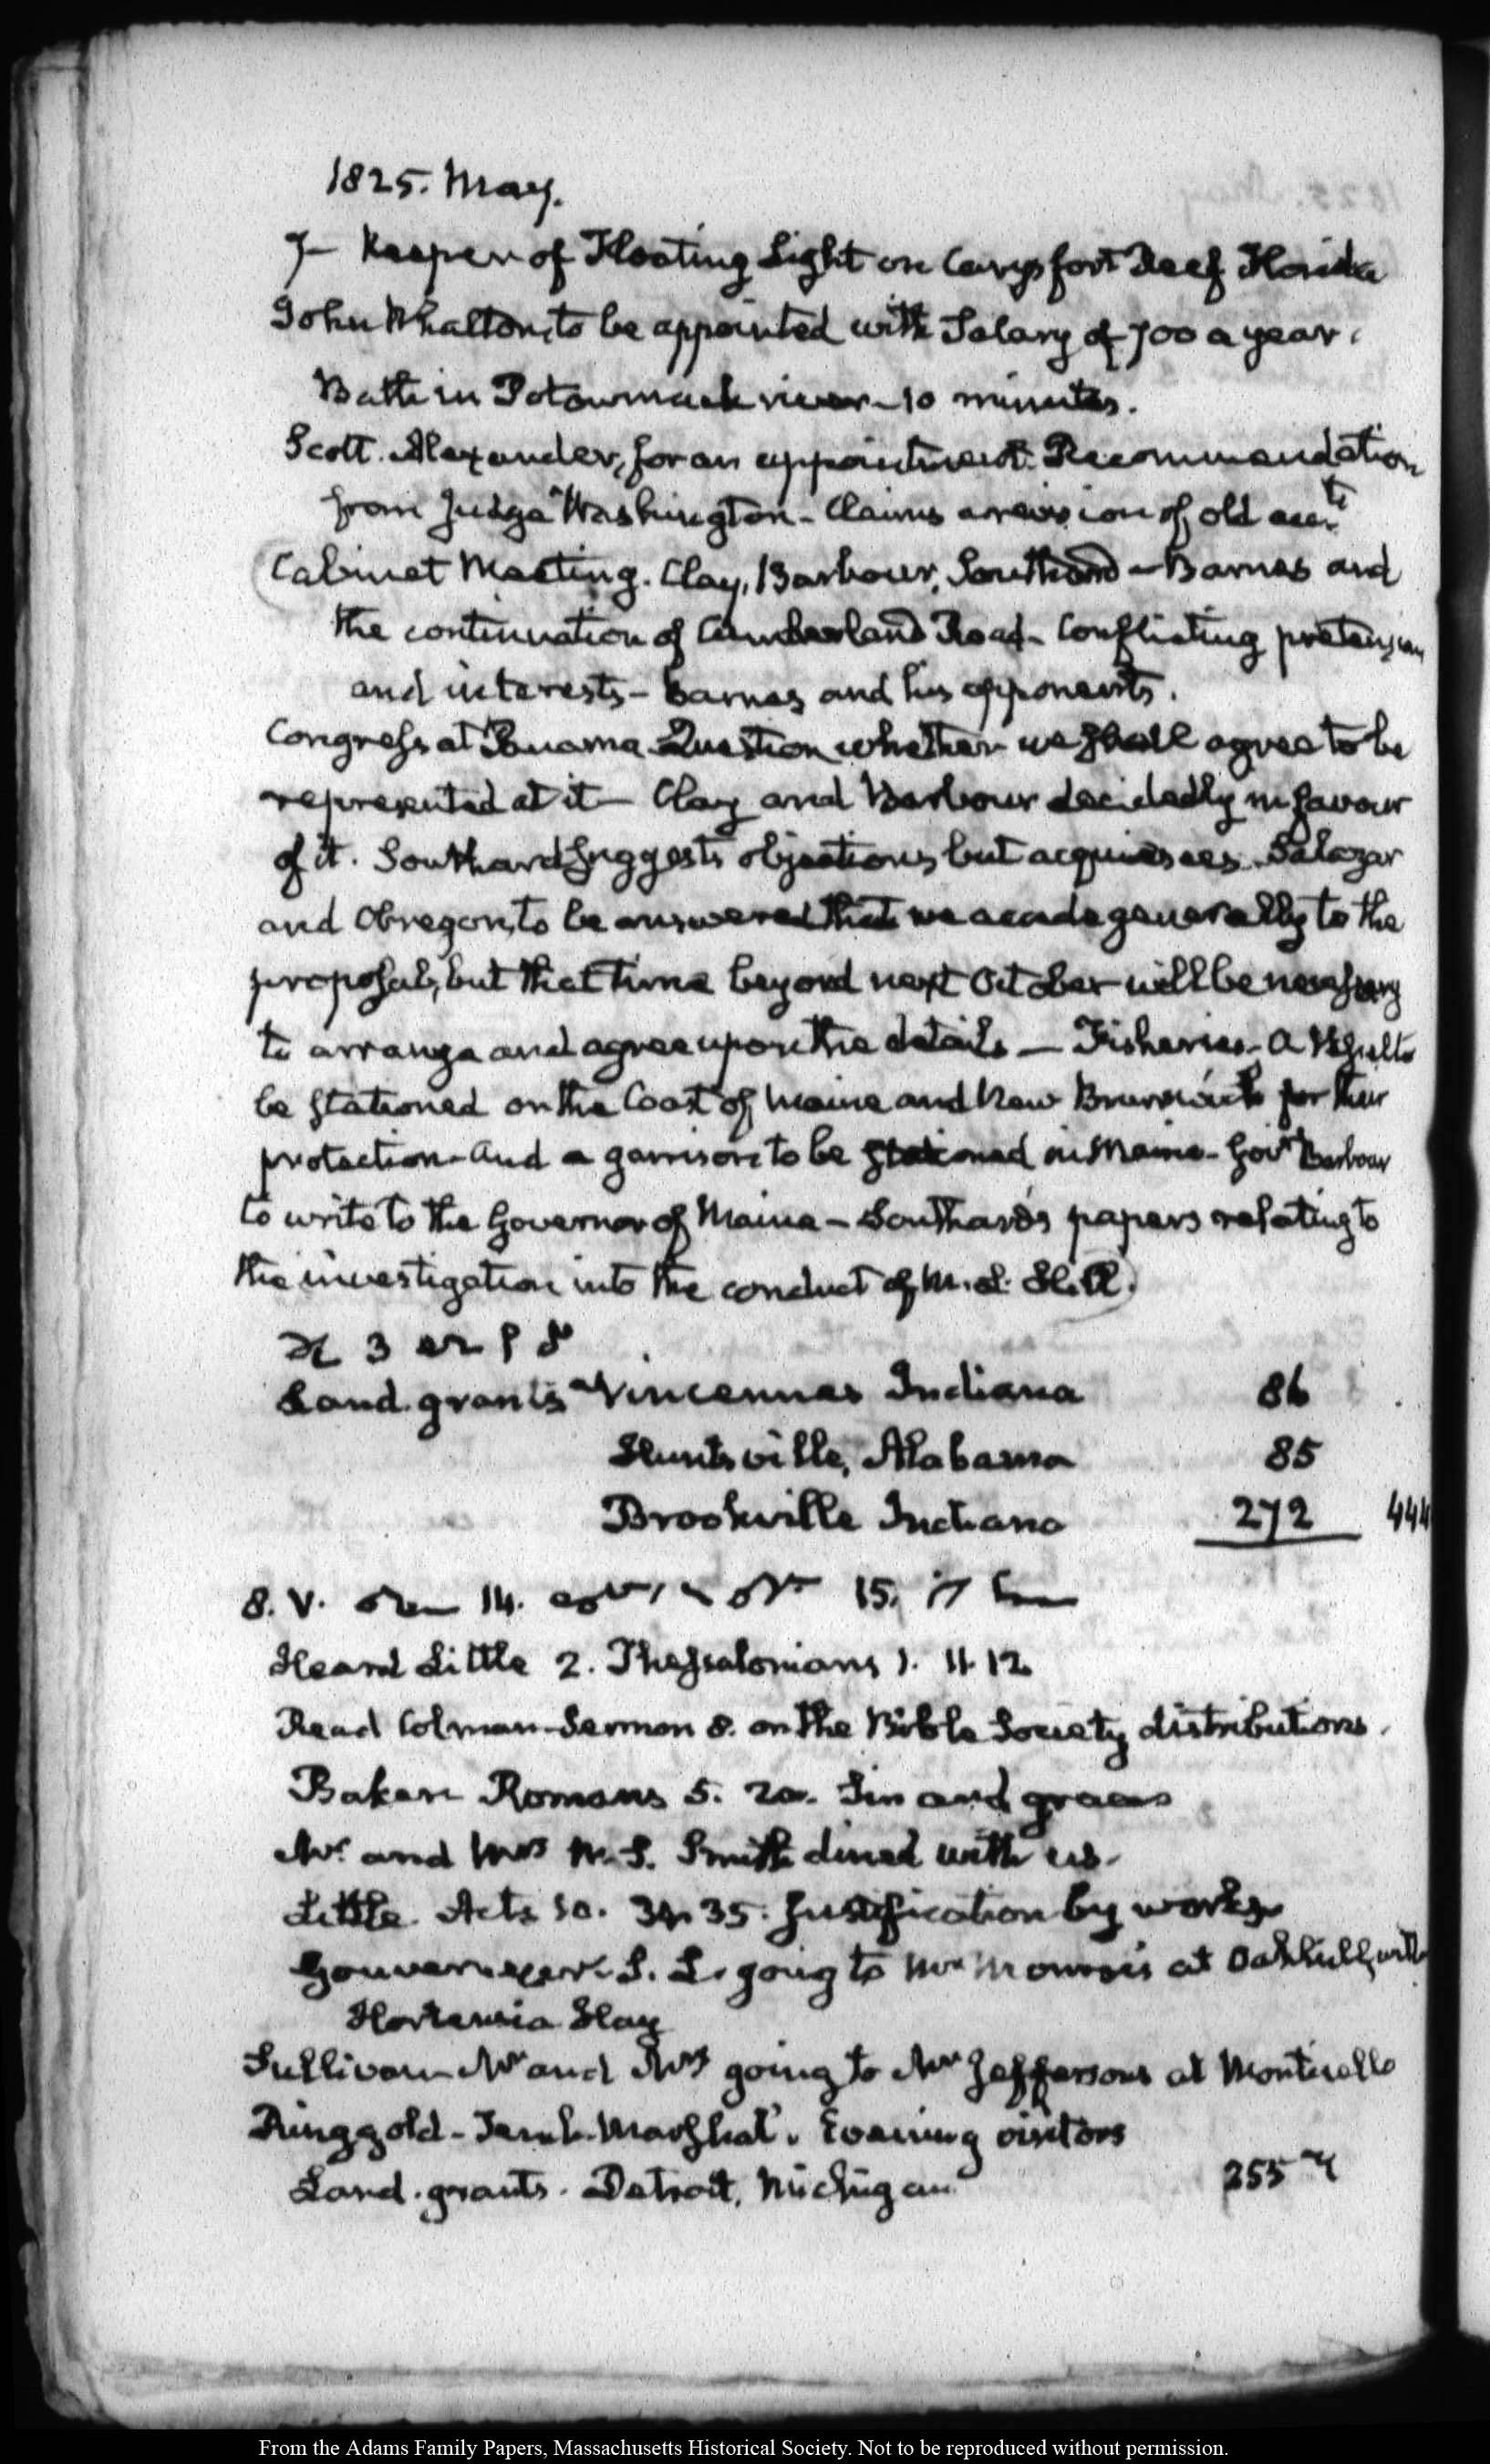 1825. May.
7— Keeper of Floating Light on Carysfort Reef Florida
John Whalton, to be appointed with Salary of 700 a year.
Bath in Potowmack river - 10 minutes.
Scott. Alexander, for an appointment. Recommendation
from Judge Washington - Claims a revision of old acc.ts
Cabinet Meeting. Clay, Barbour, Southard - Barnes and
the continuation of Cumberland Road - Conflicting pretension
and interests - Barnes and his opponents.
Congress at Panama Question whether we shall agree to be
represented at it — Clay and Barbour decidedly in favour
of it. Southard suggests objections but acquiesces. Salazar
and Obregon, to be answered that we accede generally to the
proposal, but that time beyond next October will be necessary
to arrange and agree upon the details — Fisheries - A Vessel to
be stationed on the Coast of Maine and New Brunswick for their
protection - And a garrison to be stationed in Maine - Gov.r Barbour
to write to the Governor of Maine - Southard's papers relating to
the investigation into the conduct of M. L. Hill.
3
Land. grants - Vincennes Indiana 86
Huntsville, Alabama 85
Brookville Indiana 272 444
8. V. 14. 15.
Heard Little 2. Thessalonians 1. 11. 12
Read Colman Sermon 8. on the Bible Society distributions.
Baker Romans 5. 20. Sin and grace
Mr. and Mrs W. S. Smith dined with us.
Little. Acts 10. 34. 35. Justification by works
Gouverneur. S. L. going to Mr Monroe's at Oakhill, with
Hortensia Hay
Sullivan Mr and Mrs going to Mr Jefferson's at Monticello
Ringgold - Marshal. Evening visitors
Land. grants. Detroit, Michigan 255
From the Adams Family Papers, Massachusetts Historical Society. Not to be reproduced without permission.